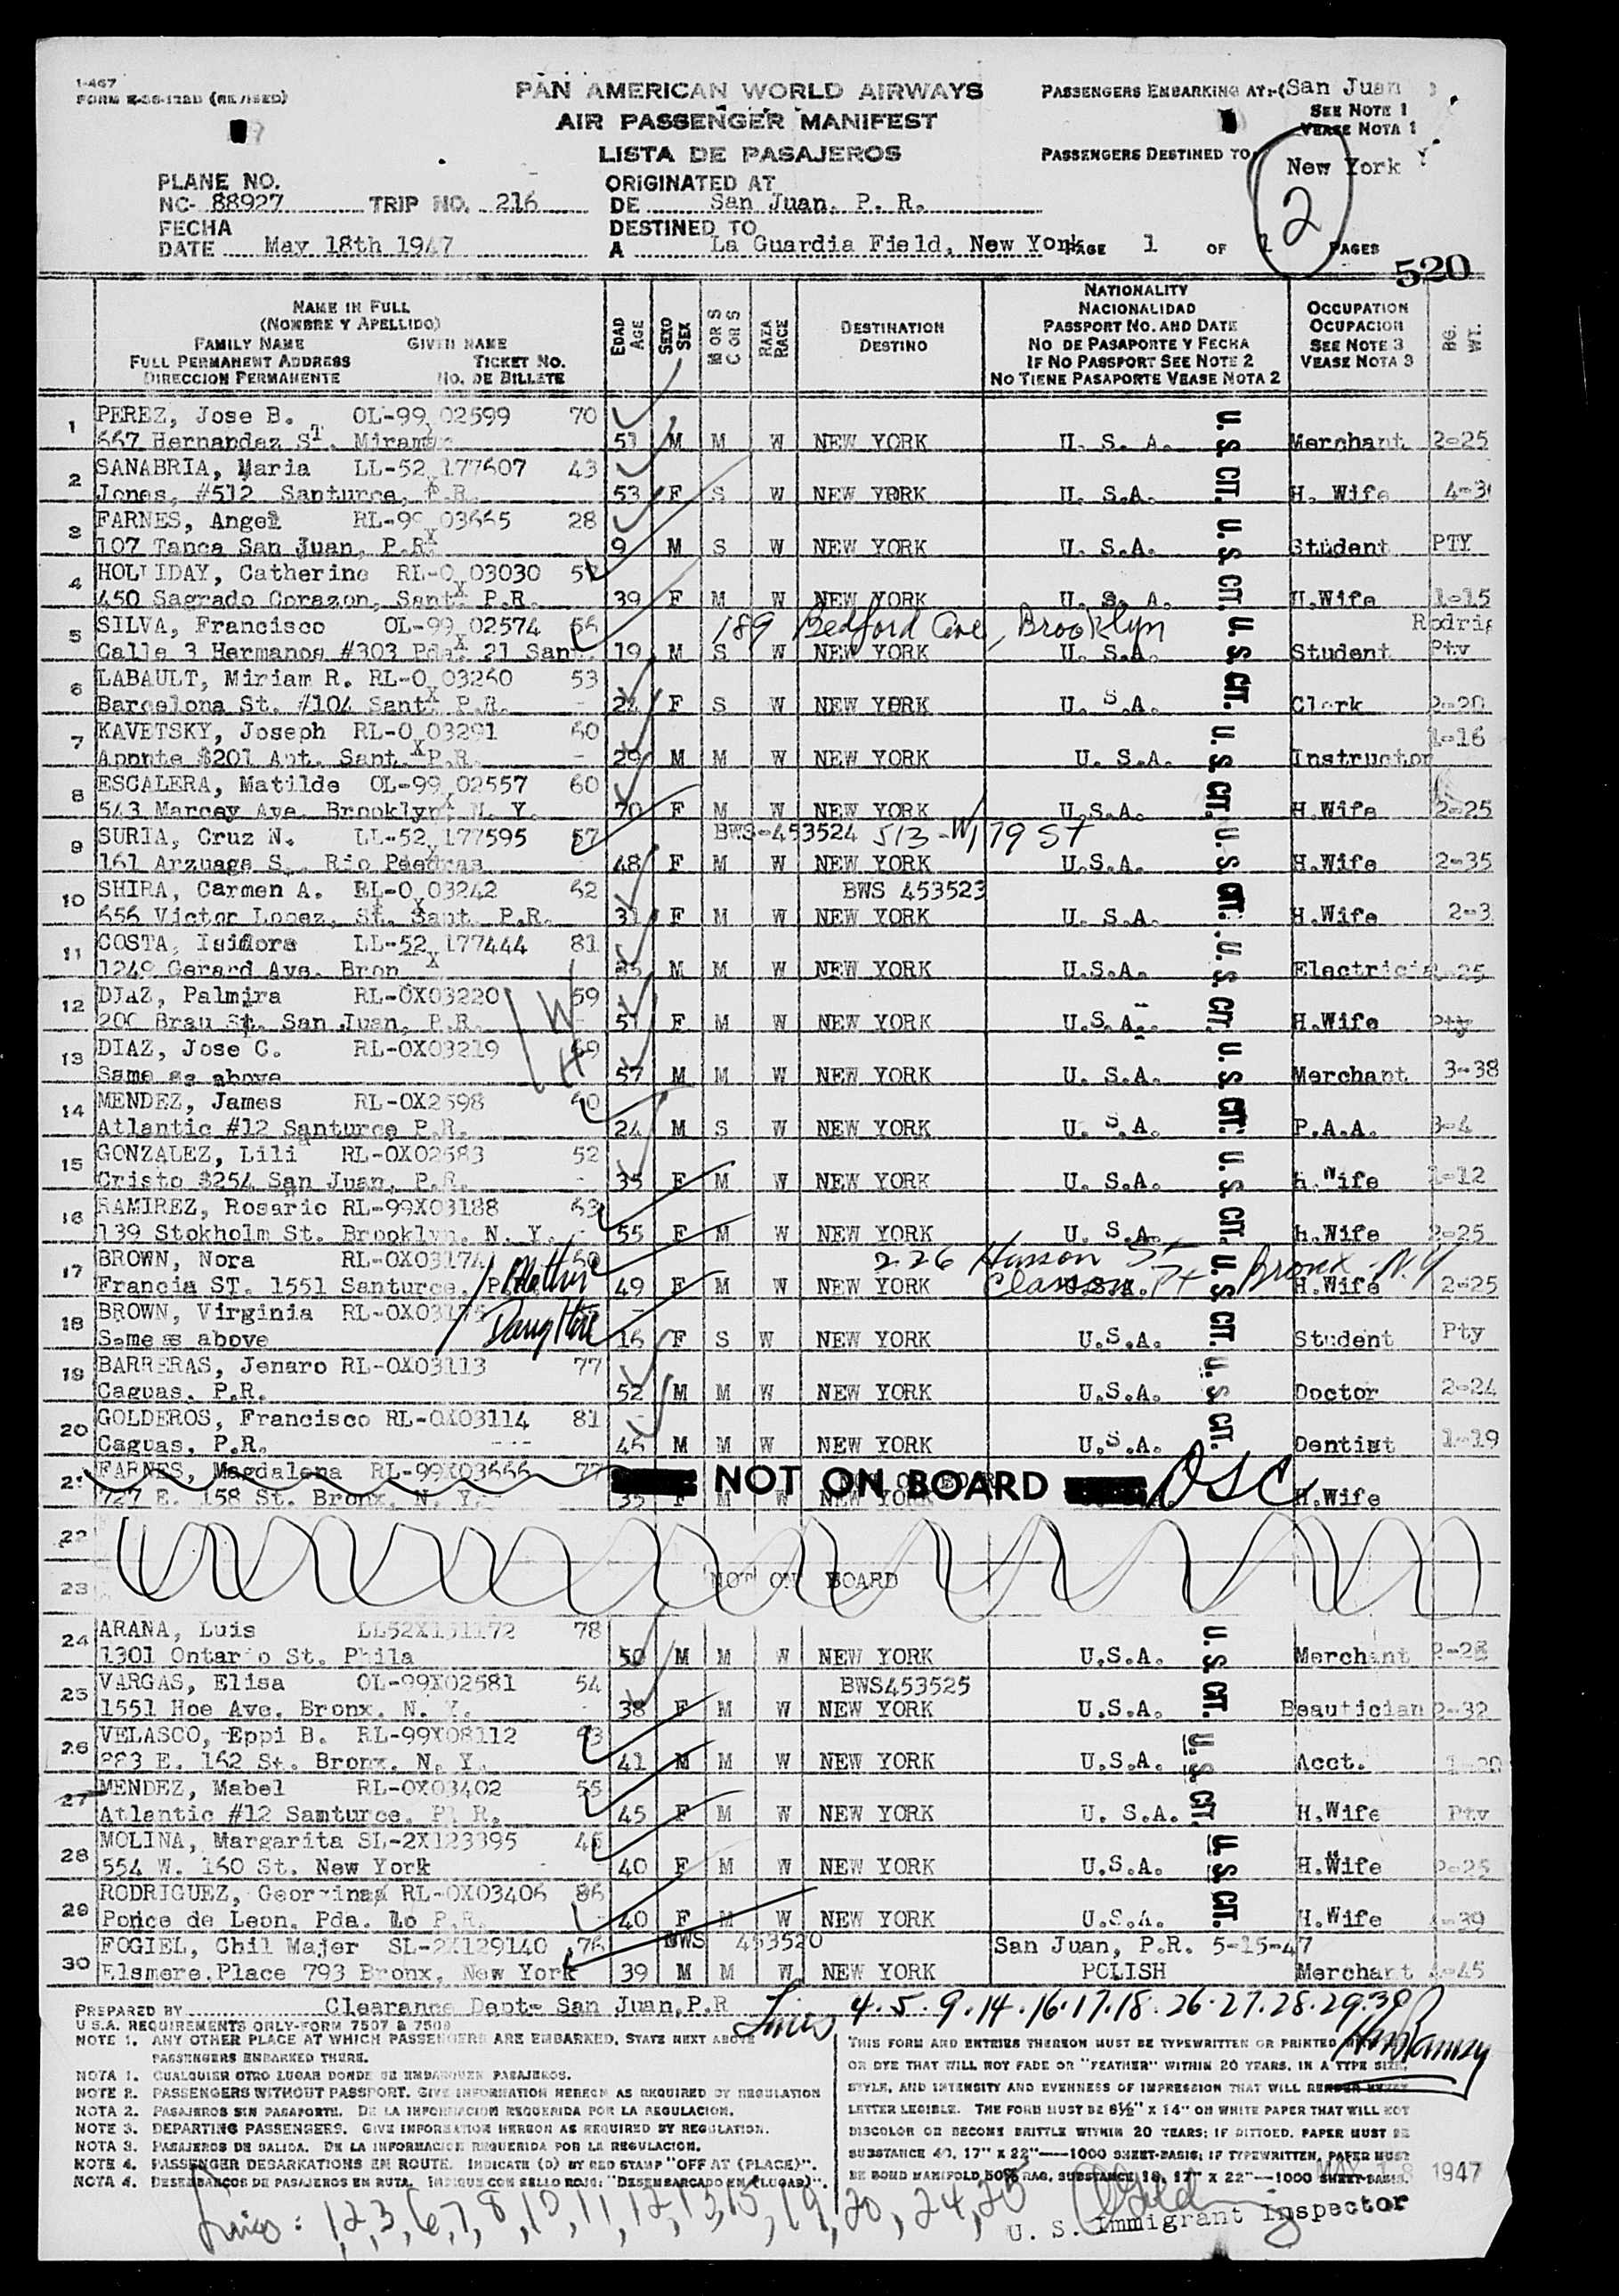 I-467
FORM K-36-122D (REVISED)
PAN AMERICAN WORLD AIRWAYS
AIR PASSENGER MANIFEST
LISTA DE PASAJEROS
PASSENGERS EMBARKING AT:-(San Juan
SEE NOTE 1
VEASE NOTA 1
PASSENGERS DESTINED TO
New York
2
PLANE NO.
NC- 88927 TRIP NO. 216
ORIGINATED AT
DE San Juan, P. R.
FECHA
DATE May 18th 1947
DESTINED TO
A La Guardia Field, New York PAGE 1 OF 1 PAGES
520
NAME IN FULL
(NOMBRE Y APELLIDO)
FAMILY NAME GIVEN NAME
FULL PERMANENT ADDRESS TICKET NO.
DIRECCION PERMANENTE NO. DE BILLETE
EDAD AGE
SEXO SEX
M OR S C OR S
RAZA RACE
DESTINATION
DESTINO
NATIONALITY
NACIONALIDAD
PASSPORT NO. AND DATE
NO DE PASAPORTE Y FECHA
IF NO PASSPORT SEE NOTE 2
NO TIENE PASAPORTE VEASE NOTA 2
OCCUPATION
OCUPACION
SEE NOTE 3
VEASE NOTA 3
BG. WT.
1 PEREZ, Jose B. OL-99 02599 70
667 Hernandez ST. Miramar 51 M M W NEW YORK U. S. A. U. S. CIT. Merchant 2-25
2 SANABRIA, Maria LL-52 177607 43
Jones, #512 Santurce, P.R. 53 F S W NEW YORK U. S.A. H. Wife
3 FARNES, Angel RL-99 03665 28
107 Tanca San Juan, P.R. 9 M S W NEW YORK U. S.A. U. S. CIT. Student PTY
4 HOLLIDAY, Catherine RL-O 03030
450 Sagrado Corazon, Sant. P.R. 39 F M W NEW YORK U. S. A. H.Wife 1-15
5 SILVA, Francisco OL-99 02574 56 189 Bedford Ave, Brooklyn
Calle 3 Hermanos #303 Pda. 21 Sant. 19 M S W NEW YORK U. S.A. U. S. CIT. Student Pty
6 LABAULT, Miriam R. RL-O 03260 53
Barcelona St. #104 Sant. P.R. F S W NEW YORK U. S.A. Clerk 2-20
7 KAVETSKY, Joseph RL-O 03291 60 1-16
Aponte $201 Apt. Sant. P.R. 29 M M W NEW YORK U. S.A. U. S. CIT. Instructor
8 ESCALERA, Matilde OL-99 02557 60
543 Marcey Ave. Brooklyn, N. Y. 70 F M W NEW YORK U.S.A. H.Wife 2-25
9 SURIA, Cruz N. LL-52 177595 57 BWS-453524 513-W 179 ST
161 Arzuaga S. Rio Piedras 48 F M W NEW YORK U.S.A. U. S. CIT. H.Wife 2-35
10 SHIRA, Carmen A. RL-O 03242 62 BWS 453523
656 Victor Lopez, St. Sant. P.R. 31 F M W NEW YORK U. S.A. H.Wife
11 COSTA, Isidora LL-52 177444 81
1249 Gerard Ave. Bron M M W NEW YORK U.S.A. U. S. CIT.
12 DIAZ, Palmira RL-OX03220 59 W
200 Brau St. San Juan, P.R. 51 F M W NEW YORK U.S.A. H.Wife Pty
13 DIAZ, Jose C. RL-OX03219 69 H
Same as above 57 M M W NEW YORK U. S.A. U. S. CIT. Merchant 3-38
14 MENDEZ, James RL-OX2598
Atlantic #12 Santurce P.R. 24 M S W NEW YORK U. S.A. P.A.A. 3-4
15 GONZALEZ, Lili RL-OX02583 52
Cristo $254 San Juan, P.R. 35 F M W NEW YORK U. S.A. U. S. CIT. h.Wife 1-12
16 RAMIREZ, Rosario RL-99X03188 63
139 Stokholm St. Brooklyn. N. Y. 55 F M W NEW YORK U. S.A. h.Wife 2-25
17 BROWN, Nora RL-OX03174 Mother 226 Husson St Bronx N.Y
Francia ST. 1551 Santurce, P.R. 49 F M W NEW YORK Clason Pt U. S. CIT. H.Wife 2-25
18 BROWN, Virginia RL-OX03175 Daughter
Same as above 16 F S W NEW YORK U.S.A. Student Pty
19 BARRERAS, Jenaro RL-OX03113 77
Caguas, P.R. 52 M M W NEW YORK U.S.A. U. S. CIT. Doctor 2-24
20 GOLDEROS, Francisco RL-OX03114 81
Caguas, P.R. 46 M M W NEW YORK U.S.A. Dentist 1-19
21 FARNES, Magdalena RL-99X03666 77 NOT ON BOARD
727 E. 158 St. Bronx, N. Y. 35 F M W NEW YORK H.Wife
22
23 NOT ON BOARD
24 ARANA, Luis 78
1301 Ontario St. Phila 50 M M W NEW YORK U.S.A. U. S. CIT. Merchant
25 VARGAS, Elisa OL-99X02581 54 BWS453525
1551 Hoe Ave. Bronx. N. Y. 38 F M W NEW YORK U.S.A. Beautician 2-32
26 VELASCO, Eppi B. RL-99X08112
883 E. 162 St. Bronx, N. Y. 41 M M W NEW YORK U.S.A. U. S. CIT. Acct. 1-20
27 MENDEZ, Mabel RL-OX03402 55
Atlantic #12 Samturce. P. R. 45 F M W NEW YORK U. S.A. H.Wife Pty
28 MOLINA, Margarita SL-2X123395
554 W. 160 St. New York 40 F M W NEW YORK U.S.A. U. S. CIT. H.Wife 2-25
29 RODRIGUEZ, Georgina RL-OX03406 86
Ponce de Leon. Pda. P.R. 40 F M W NEW YORK U.S.A. H.Wife
30 FOGIEL, Chil Majer SL-2X129140 76 BWS 453520 San Juan, P.R. 5-15-47
Elsmere.Place 793 Bronx, New York 39 M M W NEW YORK POLISH Merchant
PREPARED BY Clearance Dept- San Juan,P.R Lines 4.5.9.14.16.17.18.26.27.28.29.30
U.S.A. REQUIREMENTS ONLY-FORM 7507 & 7509
NOTE 1. ANY OTHER PLACE AT WHICH PASSENGERS ARE EMBARKED, STATE NEXT ABOVE
PASSENGERS EMBARKED THERE.
NOTA 1. CUALQUIER OTRO LUGAR DONDE SE EMBARQUEN PASAJEROS.
NOTE 2. PASSENGERS WITHOUT PASSPORT. GIVE INFORMATION HEREON AS REQUIRED BY REGULATION
NOTA 2. PASAJEROS SIN PASAPORTE. DE LA INFORMACION REQUERIDA POR LA REGULACION.
NOTE 3. DEPARTING PASSENGERS. GIVE INFORMATION HEREON AS REQUIRED BY REGULATION.
NOTA 3. PASAJEROS DE SALIDA. DE LA INFORMACION REQUERIDA POR LA REGULACION.
NOTE 4. PASSENGER DEBARKATIONS EN ROUTE. INDICATE (D) BY RED STAMP "OFF AT (PLACE)".
NOTA 4. DESEMBARCOS DE PASAJEROS EN RUTA. INDIQUE CON SELLO ROJO: "DESEMBARCADO EN (LUGAR)".
THIS FORM AND ENTRIES THEREON MUST BE TYPEWRITTEN OR PRINTED
OR DYE THAT WILL NOT FADE OR "FEATHER" WITHIN 20 YEARS, IN A TYPE SIZE,
STYLE, AND INTENSITY AND EVENNESS OF IMPRESSION THAT WILL RENDER EVERY
LETTER LEGIBLE. THE FORM MUST BE 8½" X 14" ON WHITE PAPER THAT WILL NOT
DISCOLOR OR BECOME BRITTLE WITHIN 20 YEARS; IF DITTOED. PAPER MUST BE
SUBSTANCE 40, 17" X 22"—1000 SHEET-BASIS; IF TYPEWRITTEN, PAPER MUST
BE BOND MANIFOLD 50% RAG, SUBSTANCE 16, 17" X 22"—1000 SHEET-BASIS.
MAY 18 1947
Lines: 1,2,3,6,7,8,10,11,12,13,15,19,20,24,25
U. S. Immigrant Inspector